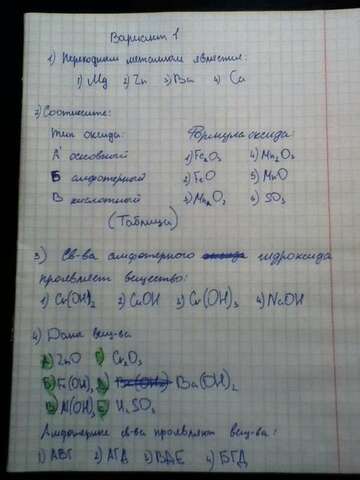 Вариант 1
1) Переходным металлом является:
1) Mg 2) Zn 3) Ba 4) Ca
2) Соотнесите:
Тип оксида: Формула оксида:
А основный 1) Fe2O3 4) Mn2O3
Б амфотерный 2) FeO 5) MnO
В кислотный 3) Mn2O7 6) SO3
(Таблица)
3) Св-ва амфотерного гидроксида
проявляет вещество:
1) Ca(OH)2 2) CuOH 3) Cr(OH)3 4) NaOH
4) Даны вещ-ва
А) ZnO Г) Cr2O3
Б) Fe(OH)3 Д) Ba(OH)2
В) Al(OH)3 Е) H2SO4
Амфотерные св-ва проявляют вещ-ва:
1) АВГ 2) АГД 3) ВДЕ 4) БГД